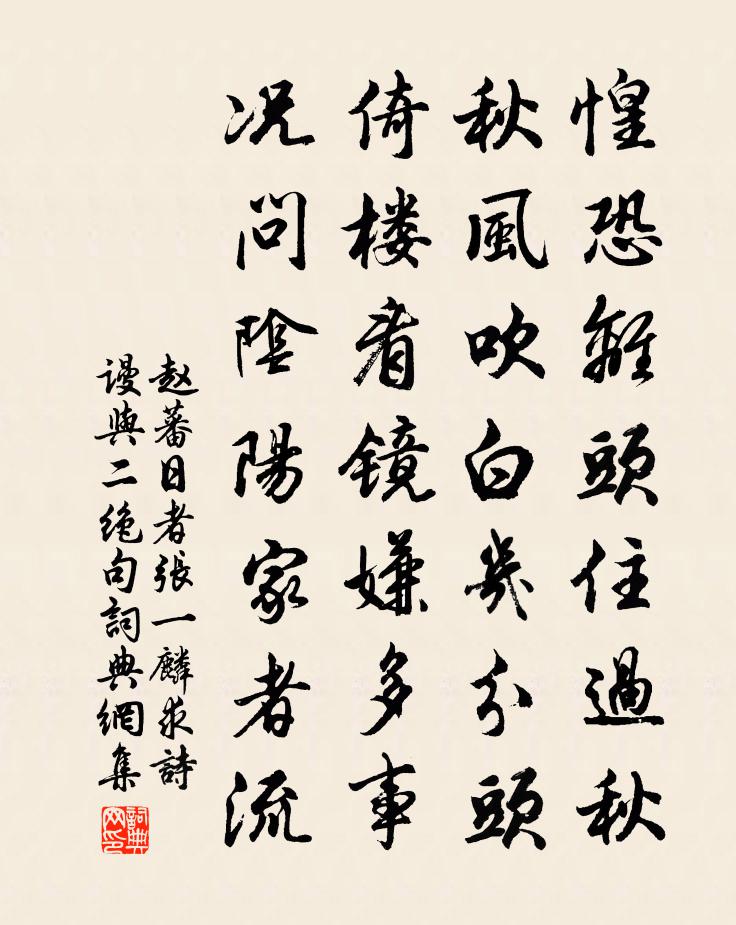 惶恐難頭住過秋
秋風吹白幾分頭
倚楼看鏡嫌多事
况問陰陽家者流
赵蕃日者張一麟求詩
谩與二绝句詞典網集
詞典网印